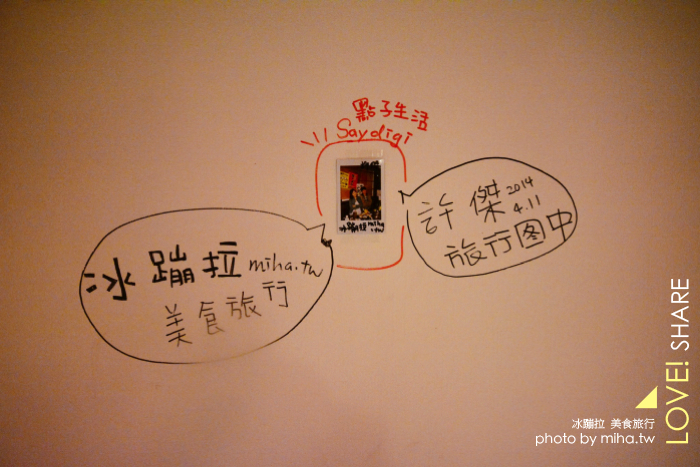 點子生活
Saydigi
冰蹦拉 miha.tw
美食旅行
許傑 2014
4.11
旅行图中
LOVE! SHARE
冰蹦拉 美食旅行
photo by miha.tw